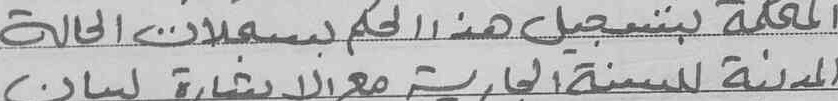 المحكمة بتسجيل هذا الحكم بسجلات الحالة
المدنية للسنة الجارية مع الاشارة لبيان